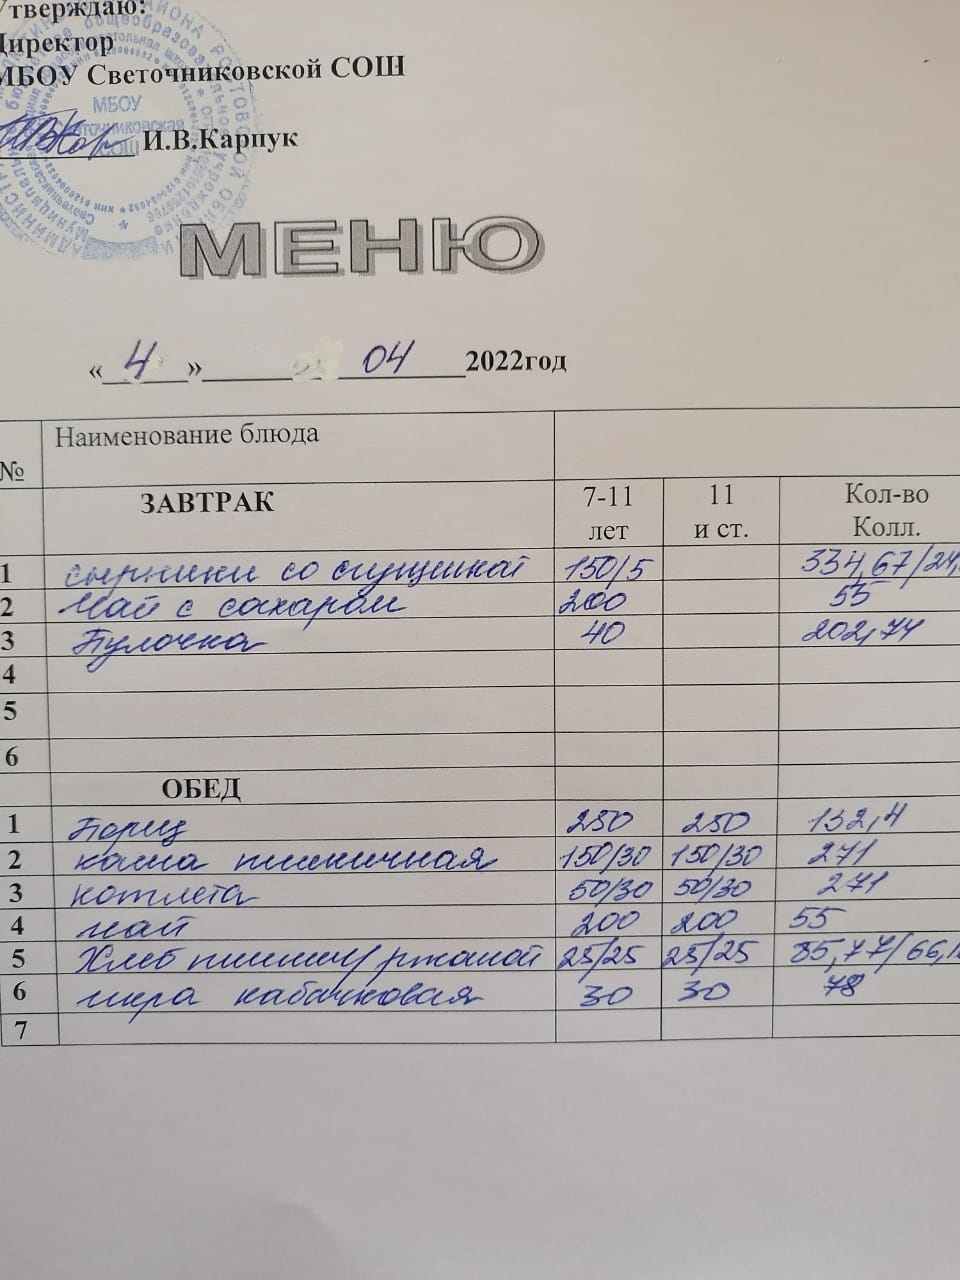 Утверждаю:
Директор
МБОУ Светочниковской СОШ
МБОУ
Светочниковская
СОШ
И.В.Карпук
МЕНЮ
« 4 » 04 2022год
№ Наименование блюда
ЗАВТРАК 7-11 лет 11 и ст. Кол-во Колл.
1 сырники со сгущенкой 150/5 334,67/24,
2 Чай с сахаром 200 55
3 Булочка 40 202,74
4
5
6
ОБЕД
1 Борщ 250 250 132,4
2 каша пшеничная 150/30 150/30 271
3 котлета 50/30 50/30 271
4 чай 200 200 55
5 Хлеб пшенич/ржаной 25/25 25/25 85,77/66,1
6 икра кабачковая 30 30 78
7